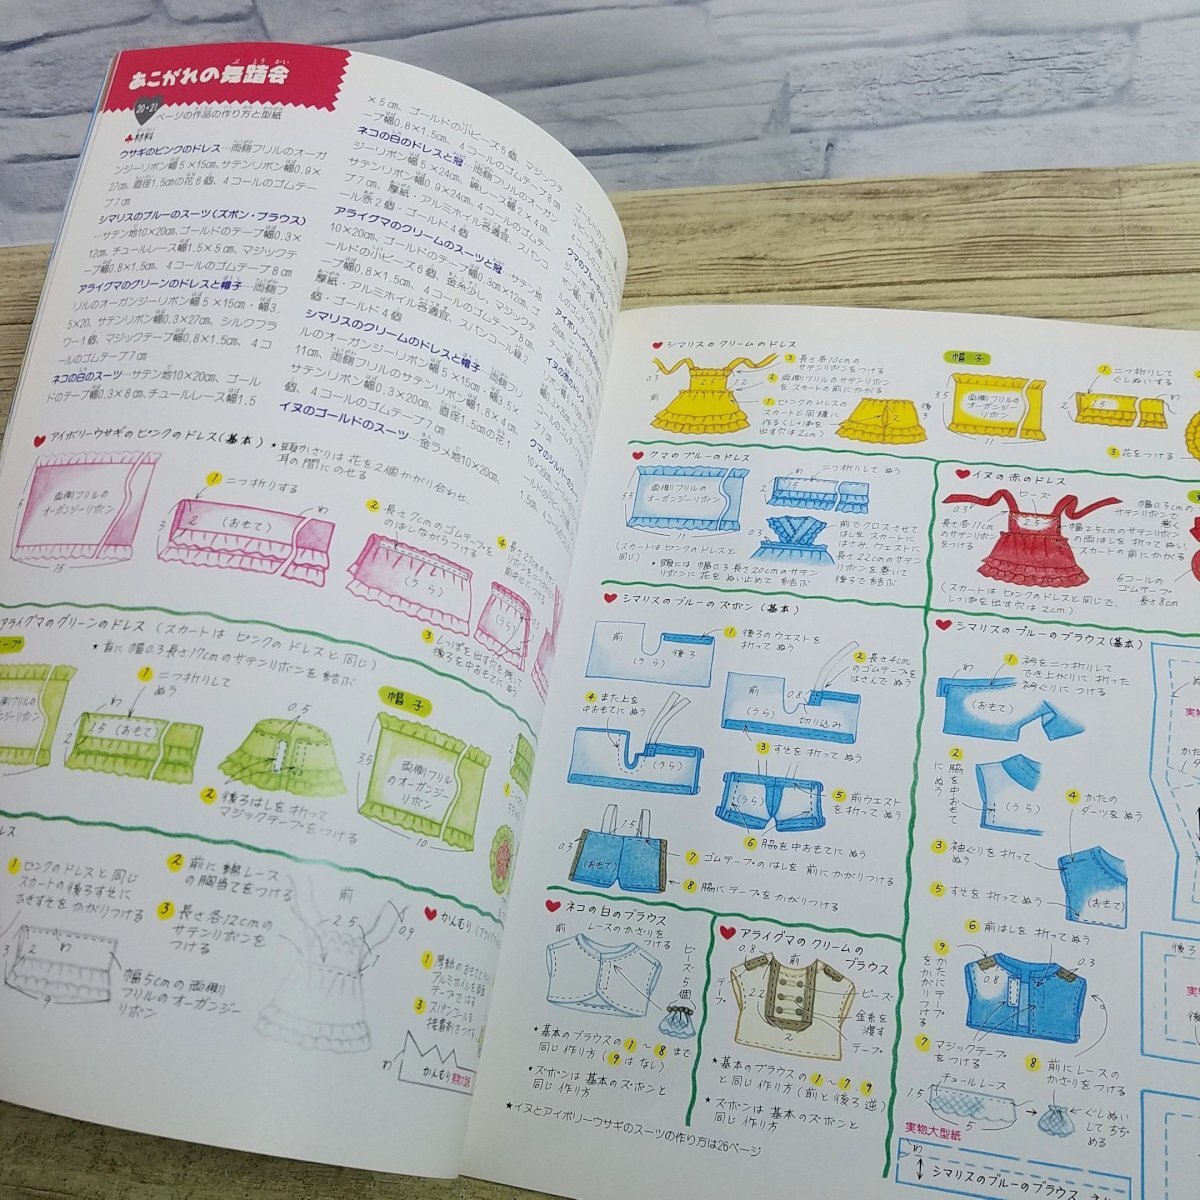 あこがれの舞踏会
20・21
ページの作品の作り方と型紙
♣材料
ウサギのピンクのドレス…両側フリルのオーガ
ンジーリボン幅5×15cm、サテンリボン幅0.9×
27cm、直径1.5cmの花6個、4コールのゴムテー
プ7cm
シマリスのブルーのスーツ(ズボン・ブラウス)
…サテン地10×20cm、ゴールドのテープ幅0.3×
12cm、チュールレース幅1.5×5cm、マジックテ
ープ幅0.8×1.5cm、4コールのゴムテープ8cm
アライグマのグリーンのドレスと帽子…両側フ
リルのオーガンジーリボン幅5×15cm・幅3.
5×20、サテンリボン幅0.3×27cm、シルクフラ
ワー1個、マジックテープ幅0.8×1.5cm、4コ
ールのゴムテープ7cm
ネコの白のスーツ…サテン地10×20cm、ゴール
ドのテープ幅0.3×8cm、チュールレース幅1.5
×5cm、ゴールドの小ビーズ5個、マジックテ
ープ幅0.8×1.5cm、4コールのゴムテープ8cm
ネコの白のドレスと冠…両側フリルのオーガン
ジーリボン幅5×24cm、綿レース幅2×4cm、
サテンリボン幅0.9×24cm、4コールのゴムテー
プ7cm、厚紙・アルミホイル各適宜、スパンコ
ール赤2個・ゴールド4個
アライグマのクリームのスーツと冠…サテン地
10×20cm、ゴールドのテープ幅0.3cm×12cm、
ゴールドの小ビーズ6個、金糸少し、マジックテ
ープ幅0.8×1.5cm、4コールのゴムテープ8cm、
厚紙・アルミホイル各適宜、スパンコール緑2
個・ゴールド4個
シマリスのクリームのドレスと帽子…両側フリ
ルのオーガンジーリボン幅5×15cm・幅3.5×
11cm、両側フリルのサテンリボン幅1.8×4cm、
サテンリボン幅0.3×20cm、直径1.5cmの花1
個、4コールのゴムテープ7cm
イヌのゴールドのスーツ…金ラメ地10×20cm、
アイボリーウサギのピンクのドレス(基本)
★頭かざりは花を2個かがり合わせ
耳の間にのせる
両側フリルの
オーガンジーリボン
5
15
1 二つ折りする
わ
2
(おもて)
3
2 長さ7cmのゴムテープを
のばしながらつける
(うら)
4
3 しっぽを出す穴を残して
後ろを中おもてにぬう
アライグマのグリーンのドレス(スカートはピンクのドレスと同じ)
★首に幅0.3長さ17cmのサテンリボンを結ぶ
1 二つ折りして
ぬう
わ
1.5 (おもて)
2
0.5
2 後ろはしを折って
マジックテープをつける
帽子
両側フリル
のオーガンジー
リボン
3.5
10
1 ピンクのドレスと同じ
スカートの後ろすそに
ひきずそをかがりつける
2 前に綿レース
の胸当てをつける
3 長さ各12cmの
サテンリボンを
つける
前
2.5
0.9
わ
2
3
9
幅5cmの両側
フリルのオーガンジー
リボン
かんむり
1
3
スパンコールを
接着剤でつける
わ
かんむり実物大型紙
シマリスのクリームのドレス
3 長さ各10cmの
サテンリボンをつける
2 両側フリルのサテンリボン
をスカートの前にかがる
1 ピンクのドレスの
スカートと同様に
作る(しっぽを
出す穴は2cm)
0.3
2.5
1.2
前
後ろ
帽子
両側フリルの
オーガンジー
リボン
3.5
11
1 二つ折りして
ぐしぬいする
1.5
3 花をつける
クマのブルーのドレス
両側フリルの
オーガンジーリボン
3.5
15
わ
二つ折りして ぬう
1.5
前でクロスさせて
はしをスカートに
はさみ、ウエストに
長さ22cmのサテン
リボンを巻いて
後ろで結ぶ
(スカートはピンクのドレスと
同じ)
★頭には幅0.3長さ20cmのサテン
リボンに花をぬい止めて結ぶ
イヌの赤のドレス
ビーズ
0.3
2.5
長さ各17cm
のサテンリボン
をつける
幅2.5cmのサテンリボン
の両はしを折ってぬい
スカートの前にかがる
6コールの
ゴムテープ
長さ8cm
(スカートはピンクのドレスと同じで、
しっぽを出す穴は2cm)
シマリスのブルーのズボン(基本)
前
後ろ
(うら)
1 後ろのウエストを
折ってぬう
2 長さ4cm
のゴムテープを
はさんでぬう
前
0.8
(うら)
切り込み
3 すそを折ってぬう
4 また上を
中おもてにぬう
(うら)
5 前ウエスト
を折って
ぬう
(うら)
6 脇を中おもてにぬう
1.5
0.3
(おもて)
7 ゴムテープのはしを前にかがりつける
8 脇にテープをかがりつける
シマリスのブルーのブラウス(基本)
わ
1 衿を二つ折りして
でき上がりに折った
衿ぐりにつける
(おもて)
2 脇を中おもて
にぬう
(うら)
3 袖ぐりを折って
ぬう
4 かたの
ダーツをぬう
5 すそを折ってぬう
(おもて)
6 前はしを折ってぬう
0.8
0.3
7 マジックテープ
をつける
8 前にレースの
かざりをつける
9 かたにテープを
かがりつける
チュールレース
1.5
5
ぐしぬい
してちぢ
める
ネコの白のブラウス
レースのかざりを
つける
ビーズ5個
★基本のブラウスの 1~8まで
同じ作り方(9はなし)
★ズボンは基本のズボンと
同じ作り方
アライグマのクリームの
ブラウス
0.8
前
テープ
2.2
2
ビーズ
金糸を
渡す
テープ
★基本のブラウスの 1~7、9
と同じ作り方(前と後ろ逆)
★ズボンは基本のズボンと
同じ作り方
★イヌとアイボリーウサギのスーツの作り方は26ページ
実物大型紙
わ
シマリスのブルーのブラウス
後ろ